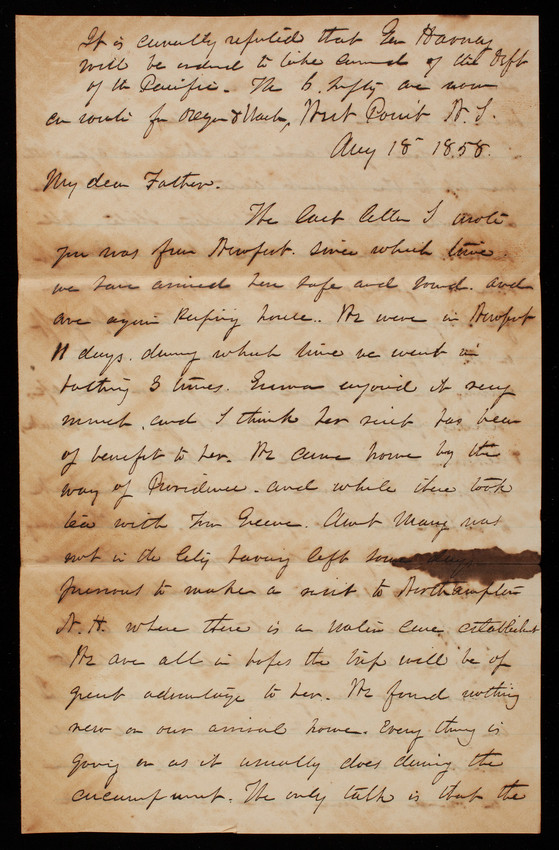 It is currently reported that Gen Harney
will be ordered to take comd of the Dept
of the Pacific. The are now
en route for Oregon & Wash, West Point N. Y.
Aug 18 1858.
My dear Father.
The last letter I wrote
you was from Newport. since which time
we have arrived here safe and sound. and
are again keeping house. We were in Newport
11 days. during which time we went in
bathing 3 times. Emma enjoyed it very
much, and I think her visit has been
of benefit to her. We came home by the
way of Providence. and while there took
tea with Greene. Aunt Mary was
not in the City having left some days
previous to make a visit to Northampton
N. H. where there is a water cure establisht
We are all in hopes the trip will be of
great advantage to her. We found nothing
new on our arrival home. Every thing is
going on as it usually does during the
encampment. The only talk is that the